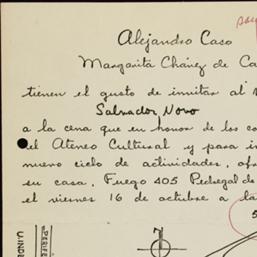 Alejandro Caso
Margarita Chánez de Ca
tienen el gusto de invitar al
Salvador Novo
a la cena que en honor de los co
el Ateneo Cultural y para in
nuevo ciclo de actividades, ofr
su casa, Fuego 405 Pedregal de
el viernes 16 de octubre a la
PERIFE